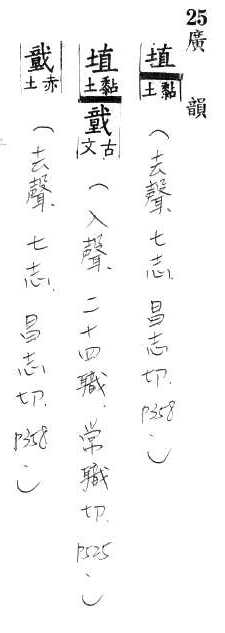 25 廣韻
埴 黏土 (去聲、七志、昌志切、P358。)
埴 黏土 戠 古文 (入聲、二十四職、常職切、P525。)
戠 赤土 (去聲、七志、昌志切、P358。)